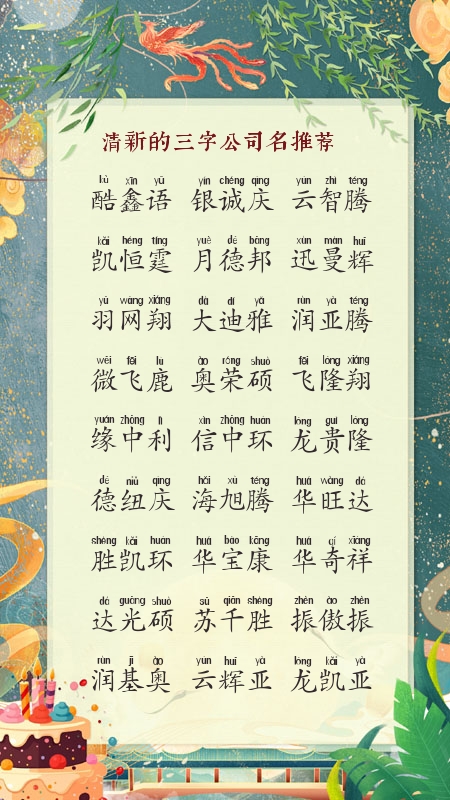 清新的三字公司名推荐
kù xīn yǔ yín chéng qìng yún zhì téng
酷鑫语 银诚庆 云智腾
kǎi héng tíng yuè dé bāng xùn màn huī
凯恒霆 月德邦 迅曼辉
yǔ wǎng xiáng dà dí yǎ rùn yà téng
羽网翔 大迪雅 润亚腾
wēi fēi lù ào róng shuò fēi lóng xiáng
微飞鹿 奥荣硕 飞隆翔
yuán zhōng lì xìn zhōng huán lóng guì lóng
缘中利 信中环 龙贵隆
dé niǔ qìng hǎi xù téng huá wàng dá
德纽庆 海旭腾 华旺达
shèng kǎi huán huá bǎo kāng huá qí xiáng
胜凯环 华宝康 华奇祥
dá guāng shuò sū qiān shèng zhèn ào zhèn
达光硕 苏千胜 振傲振
rùn jī ào yún huī yà lóng kǎi yà
润基奥 云辉亚 龙凯亚